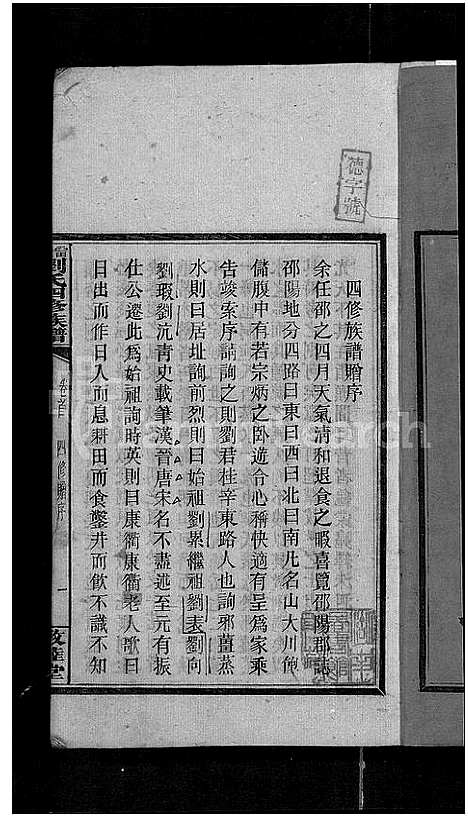 德字號
四修族譜贈序
余任邵之四月天氣清和退食之暇喜覽邵陽郡誌
邵陽地分四路曰東曰西曰北曰南凡名山大川飽
儲腹中有若宗炳之卧遊令心稱快適有呈爲家乘
告竣索序請詢之則劉君桂辛東路人也詢邪薑蒸
水則曰居址詢前烈則曰始祖劉累繼祖劉表劉向
劉瑕劉沆靑史載筆漢晉唐宋名不盡述至元有振
仕公遷此爲始祖詢時英則曰康衢康衢老人歌曰
日出而作日入而息耕田而食鑿井而飮不識不知
劉氏四修族譜
卷首
四修贈序
一
敦華堂